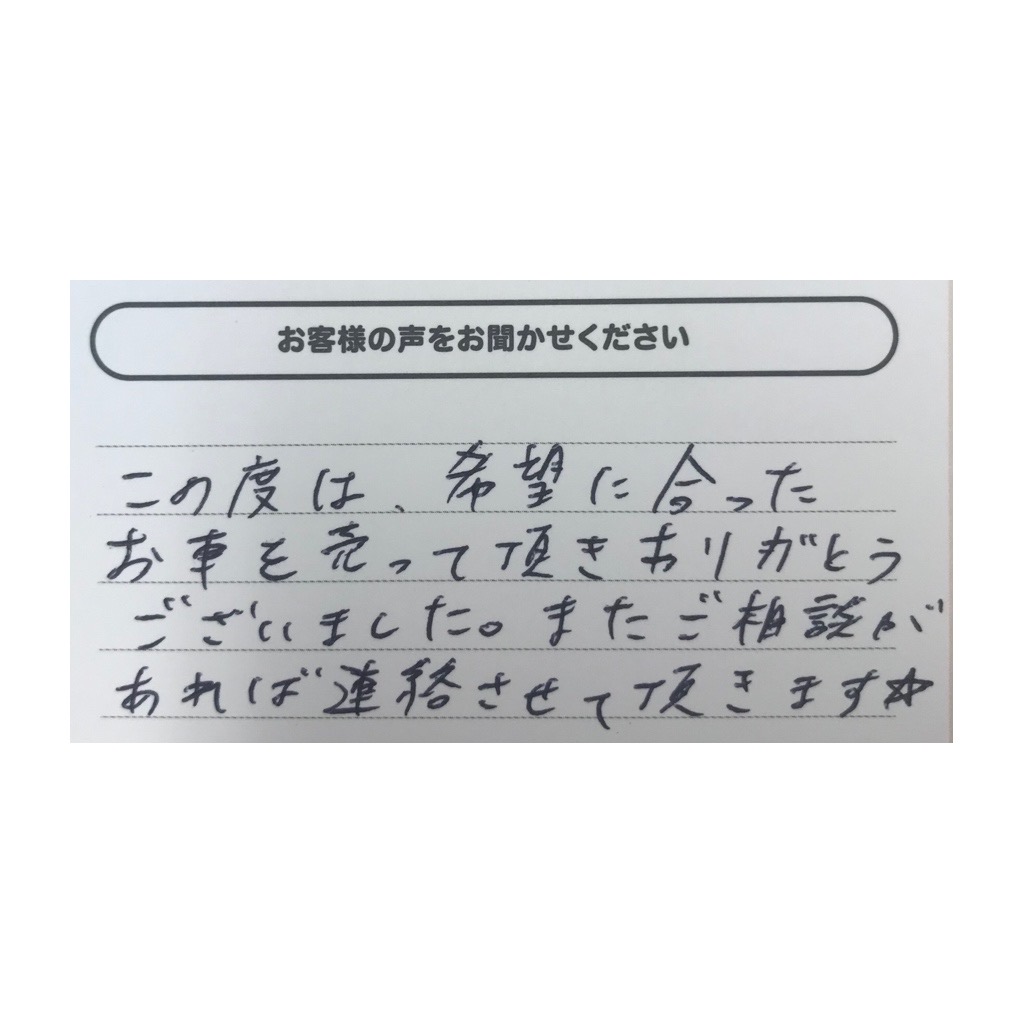 お客様の声をお聞かせください
この度は、希望に合った
お車を売って頂きありがとう
ございました。またご相談が
あれば連絡させて頂きます☆